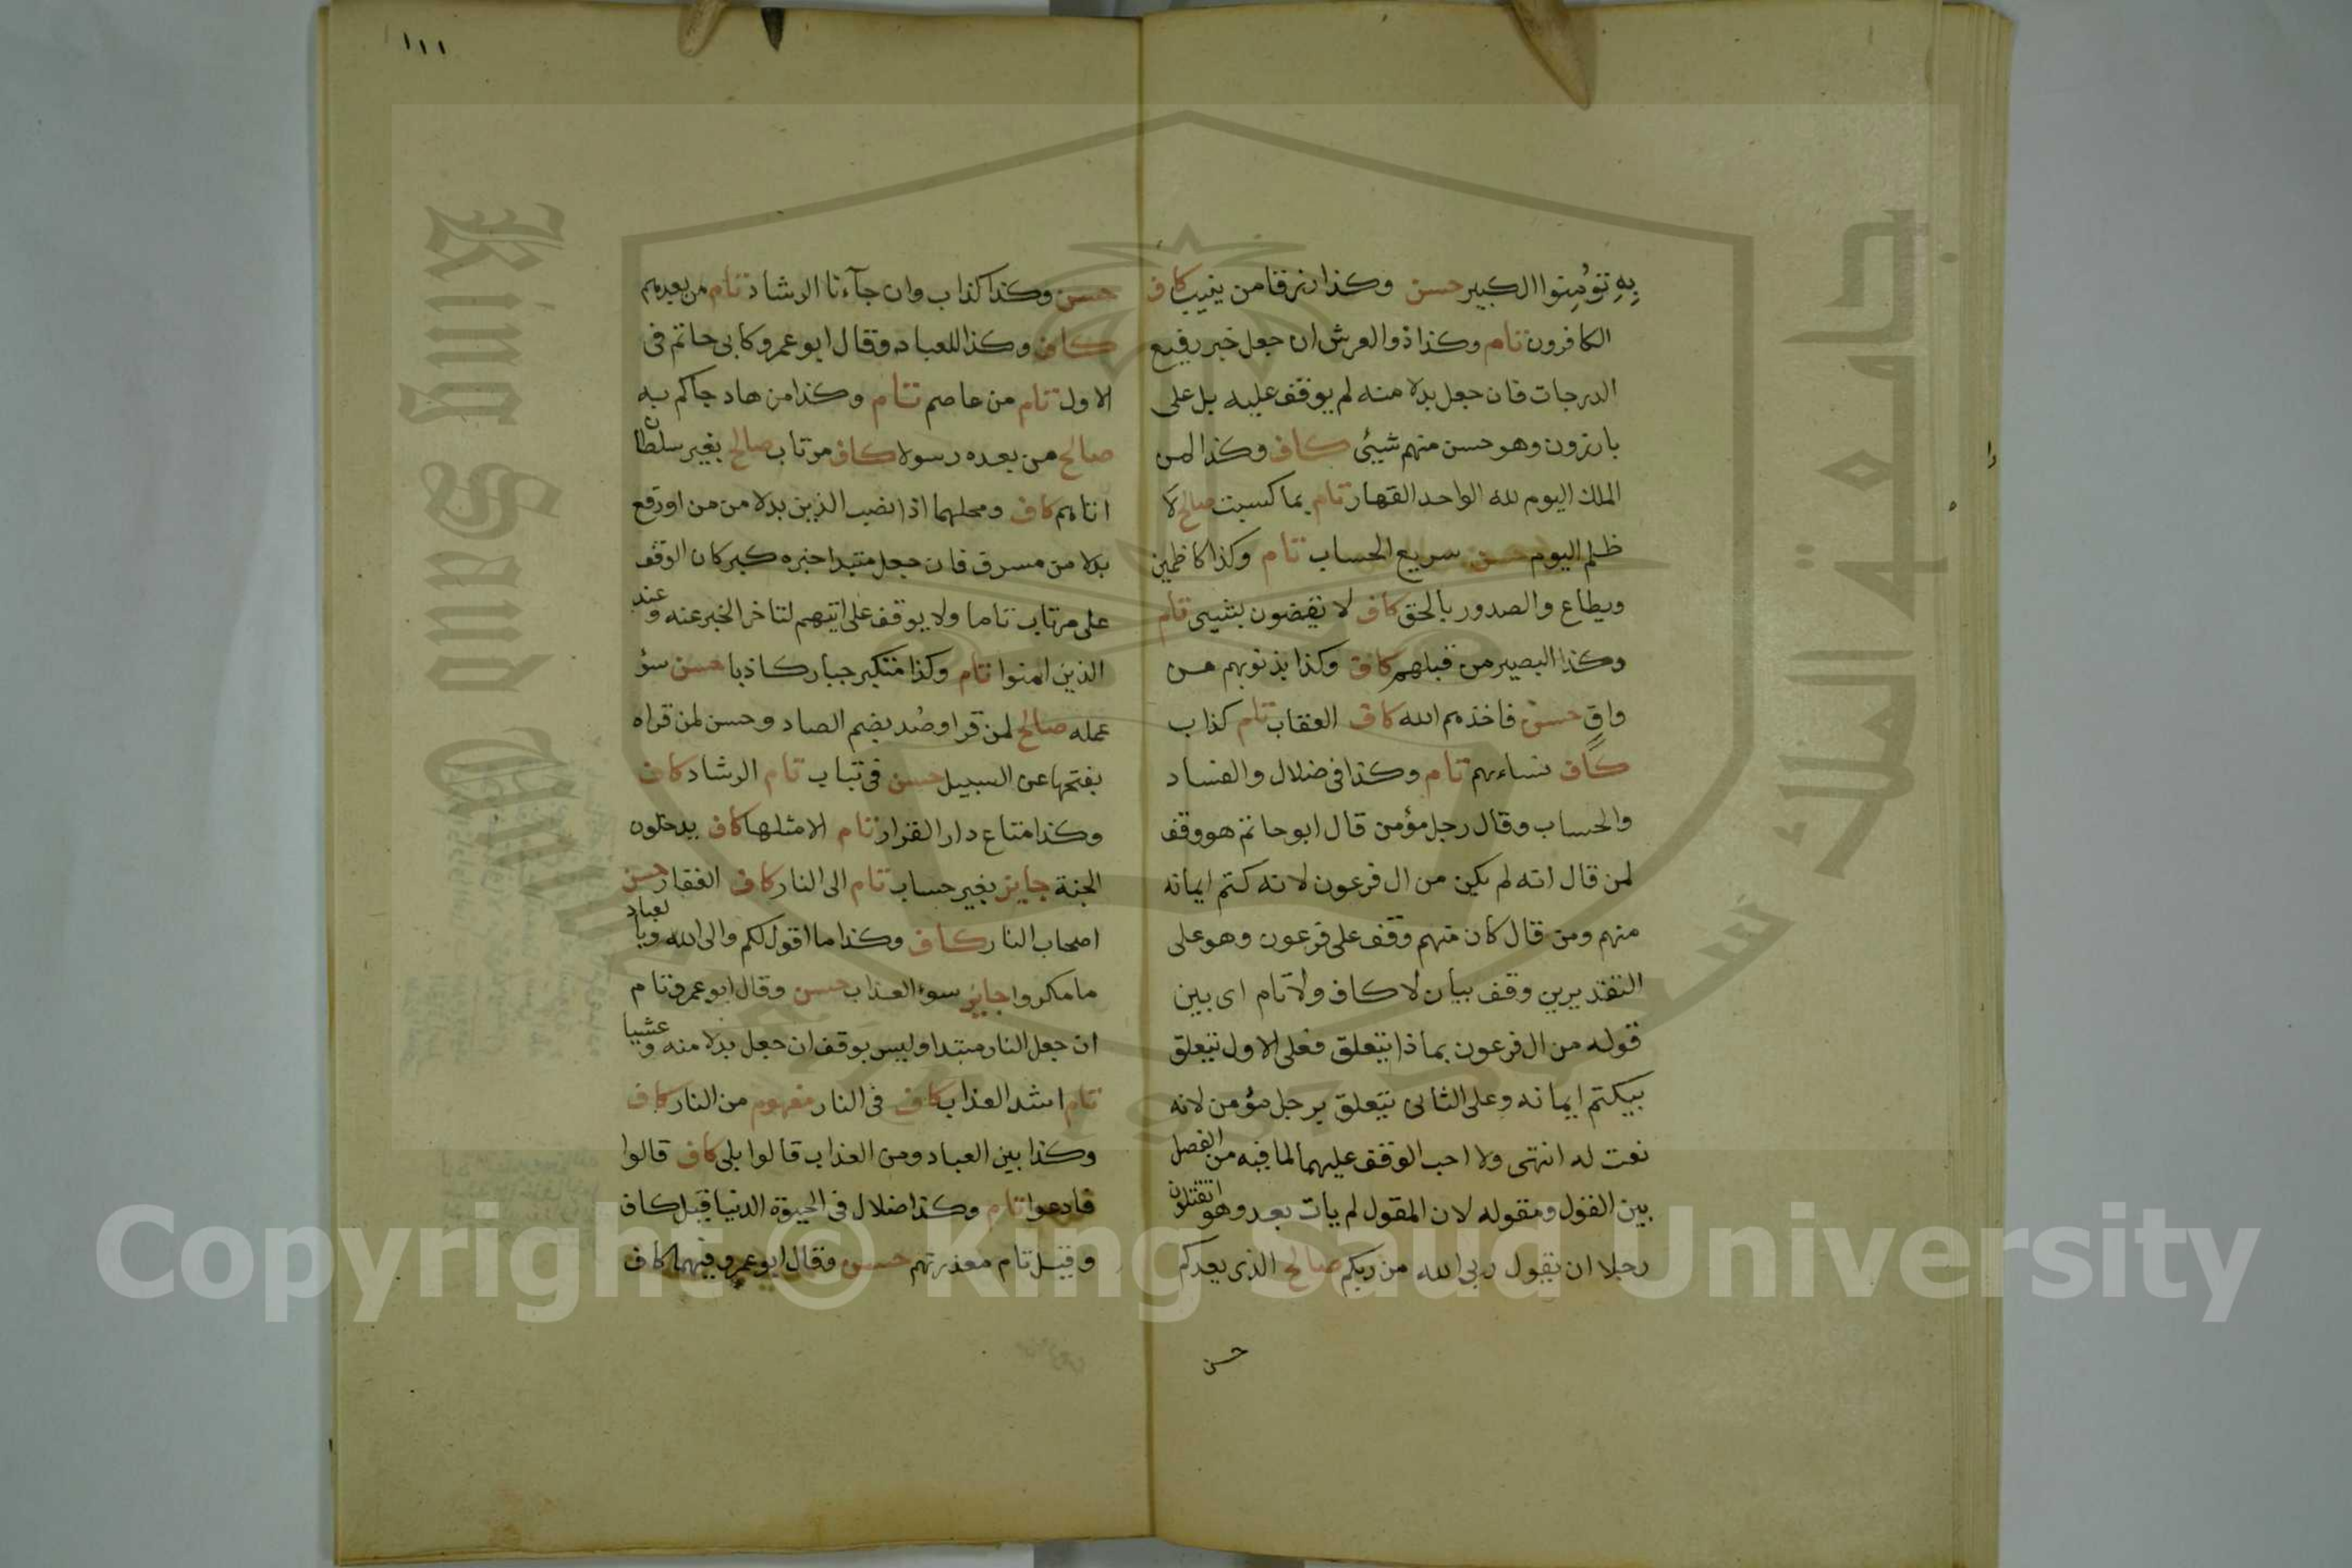 بِهِ تؤمِنوا الكبير حسن وكذا رزقا من ينيب كاف
الكافرون تام وكذا ذو العرش ان جعل خبر رفيع
الدرجات فان جعل بدلا منه لم يوقف عليه بل على
بارزون وهو حسن منهم شيئى كاف وكذا لمن
الملك اليوم لله الواحد القهار تام بما كسبت صالح لا
ظلم اليوم حسن سريع الحساب تام وكذا كاظمين
ويطاع والصدور بالحق كاف لا يقضون بشيى تام
وكذا البصير من قبلهم كاف وكذا بذنوبهم من
واق حسن فاخذهم الله كاف العقاب تام كذاب
كاف نساءهم تام وكذا فى ضلال والفساد
والحساب وقال رجل مؤمن قال ابو حاتم هو وقف
لمن قال انه لم يكن من ال فرعون لانه كتم ايمانه
منهم ومن قال كان منهم وقف على فرعون وهو على
التقديرين وقف بيان لا كاف ولا تام اى بين
قوله من ال فرعون بماذا يتعلق فعلى الاول يتعلق
بيكتم ايمانه وعلى الثانى يتعلق برجل مؤمن لانه
نعت له انتهى ولا احب الوقف عليهما لما فيه من الفصل
بين القول ومقوله لان المقول لم يأت بعد وهو اتقتلون
رجلا ان يقول ربى الله من ربكم صالح الذى يعدكم
حسن
١١١
حسن وكذا كذاب وان جآءنا الرشاد تام من بعدهم
كاف وكذا للعباد وقال ابو عمرو كابى حاتم فى
الاول تام من عاصم تام وكذا من هاد جاكم به
صالح من بعده رسولا كاف مرتاب صالح بغير سلطان
اتاهم كاف ومحلهما اذا نصب الذين بدلا من من او رفع
بدلا من مسرف فان جعل مبتدا خبره كبر كان الوقف
على مرتاب تاما ولا يوقف على اتيهم لتاخر الخبر عنه وعند
الذين امنوا تام وكذا متكبر جبار كاذبا حسن سؤ
عمله صالح لمن قرا وصُد بضم الصاد وحسن لمن قراه
بفتحها عن السبيل حسن فى تباب تام الرشاد كاف
وكذا متاع دار القرار تام الا مثلها كاف يدخلون
الجنة جايز بغير حساب تام الى النار كاف الغفار حسن
اصحاب النار كاف وكذا ما اقول لكم والى الله وبالعباد
ما مكروا جايز سوء العذاب حسن وقال ابو عمرو تام
ان جعل النار مبتدا وليس بوقف ان جعل بدلا منه وعشيا
تام اشد العذاب كاف فى النار مفهوم من النار كاف
وكذا بين العباد ومن العذاب قالوا بلى كاف قالوا
فادعوا تام وكذا ضلال فى الحيوة الدنيا قيل كاف
وقيل تام معذرتهم حسن وقال ابو عمرو فيهما كاف
King Saud University
جامعة الملك سعود
1957
Copyright © King Saud University